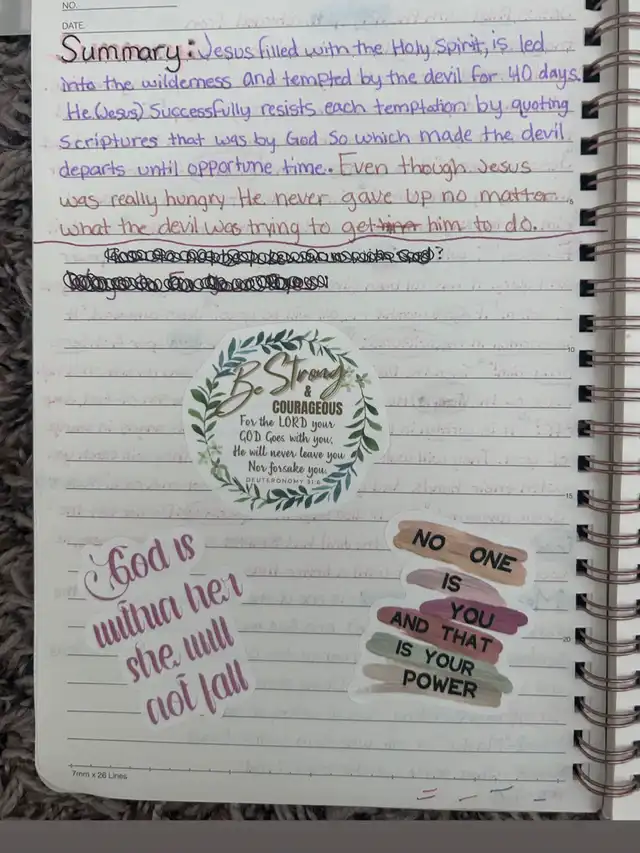 NO.
DATE
Summary: Jesus filled with the Holy Spirit, is led
into the wilderness and tempted by the devil for 40 days.
He (Jesus) successfully resists each temptation by quoting
scriptures that was by God so which made the devil
departs until opportune time. Even though Jesus
was really hungry He never gave up no matter
what the devil was trying to get him to do.
?
10
Be Strong
&
COURAGEOUS
For the LORD your
GOD Goes with you;
He will never leave you
Nor forsake you.
DEUTERONOMY 31:6
15
God is
within her
she will
not fall
NO ONE
IS
YOU
AND THAT
IS YOUR
POWER
20
7mm x 26 Lines